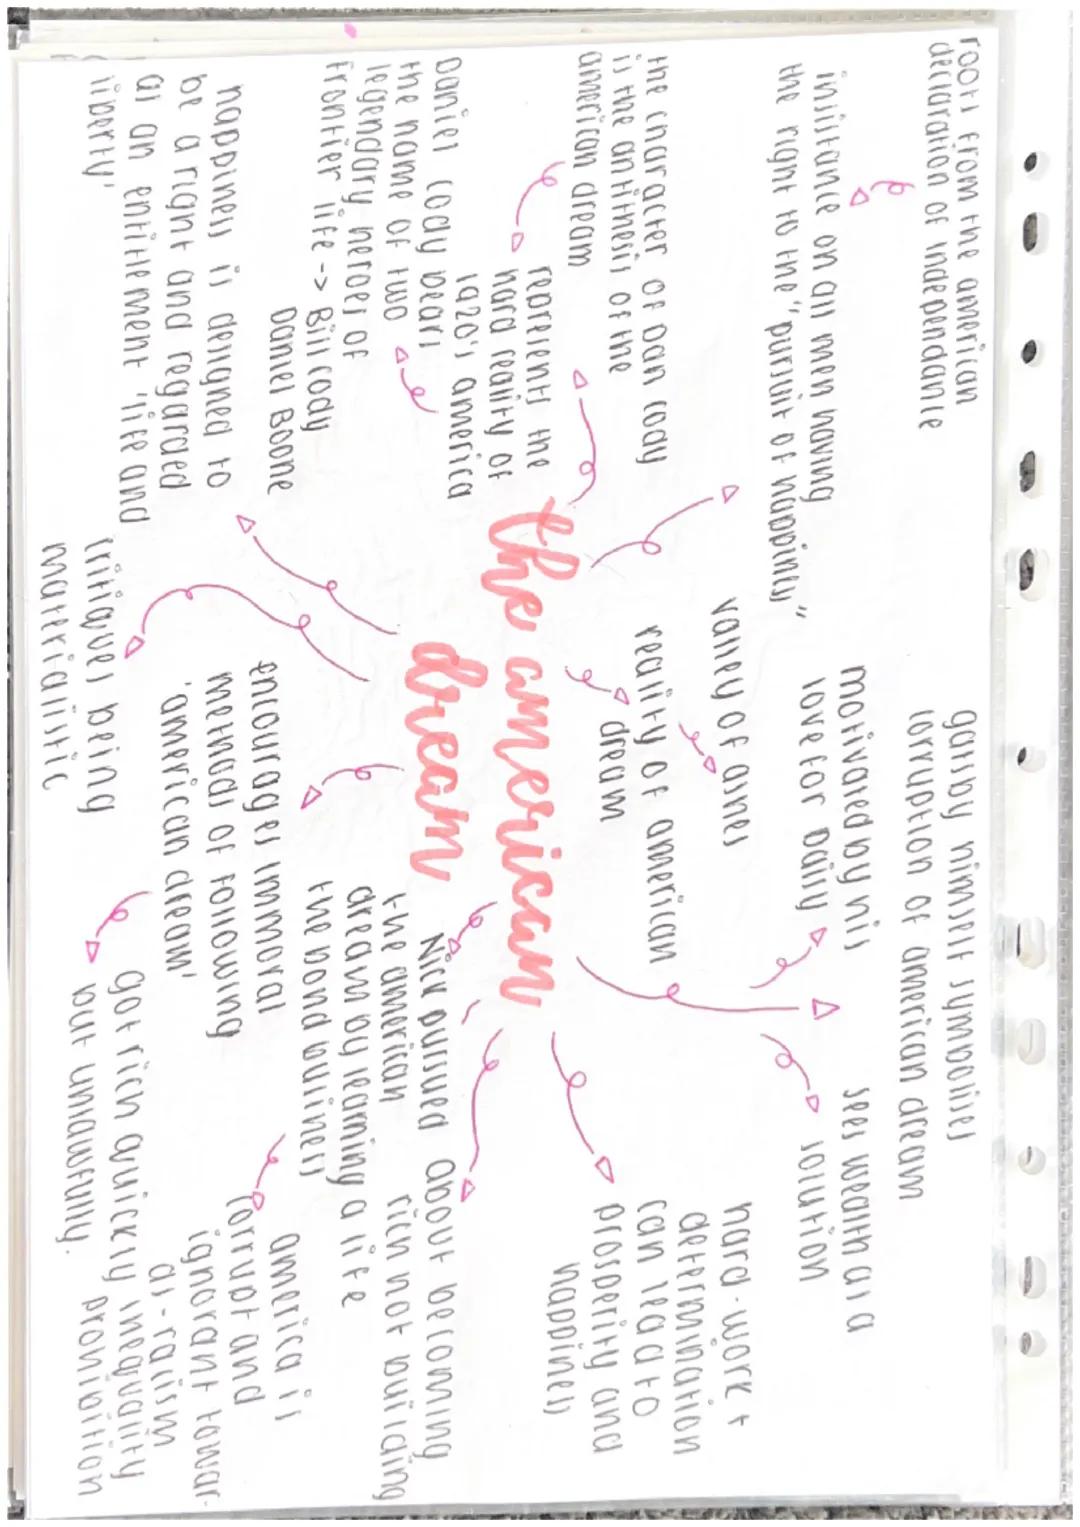 roots from the american
declaration of independance
insistance on all men having
the right to the "pursuit of happiness"
gatsby himself symbolises
corruption of american dream
motivated by his
love for daisy
sees wealth as a
solution
valley of ashes
reality of american
dream
the character of dan cody
is the antithesis of the
american dream
represents the
hard reality of
1920's america
Daniel cody bears
the name of two
legendary heroes of
frontier life -> Bill cody
Daniel Boone
the american
dream
hard-work +
determination
can lead to
prosperity and
happiness
happiness is designed to
be a right and regarded
as an entitlement 'life and
liberty'
critiques being
materialistic
encourages immoral
methods of following
'american dream'
got rich quickly
but unlawfully.
Nick pursued
the american
dream by learning
the bond business
about becoming
rich not building
a life
america is
corrupt and
ignorant towar-
ds - racism
inequality
prohibition